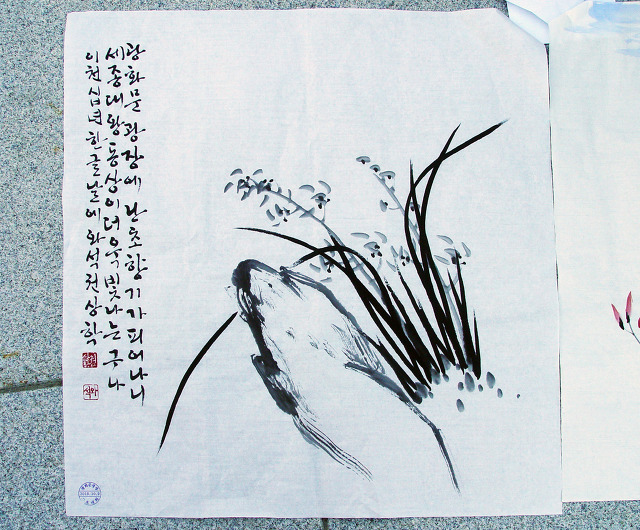 광화문 광장에 난초 향기가 피어나니
세종대왕 동상이 더욱 빛나는구나
이천십년 한글날에 화석 권상학